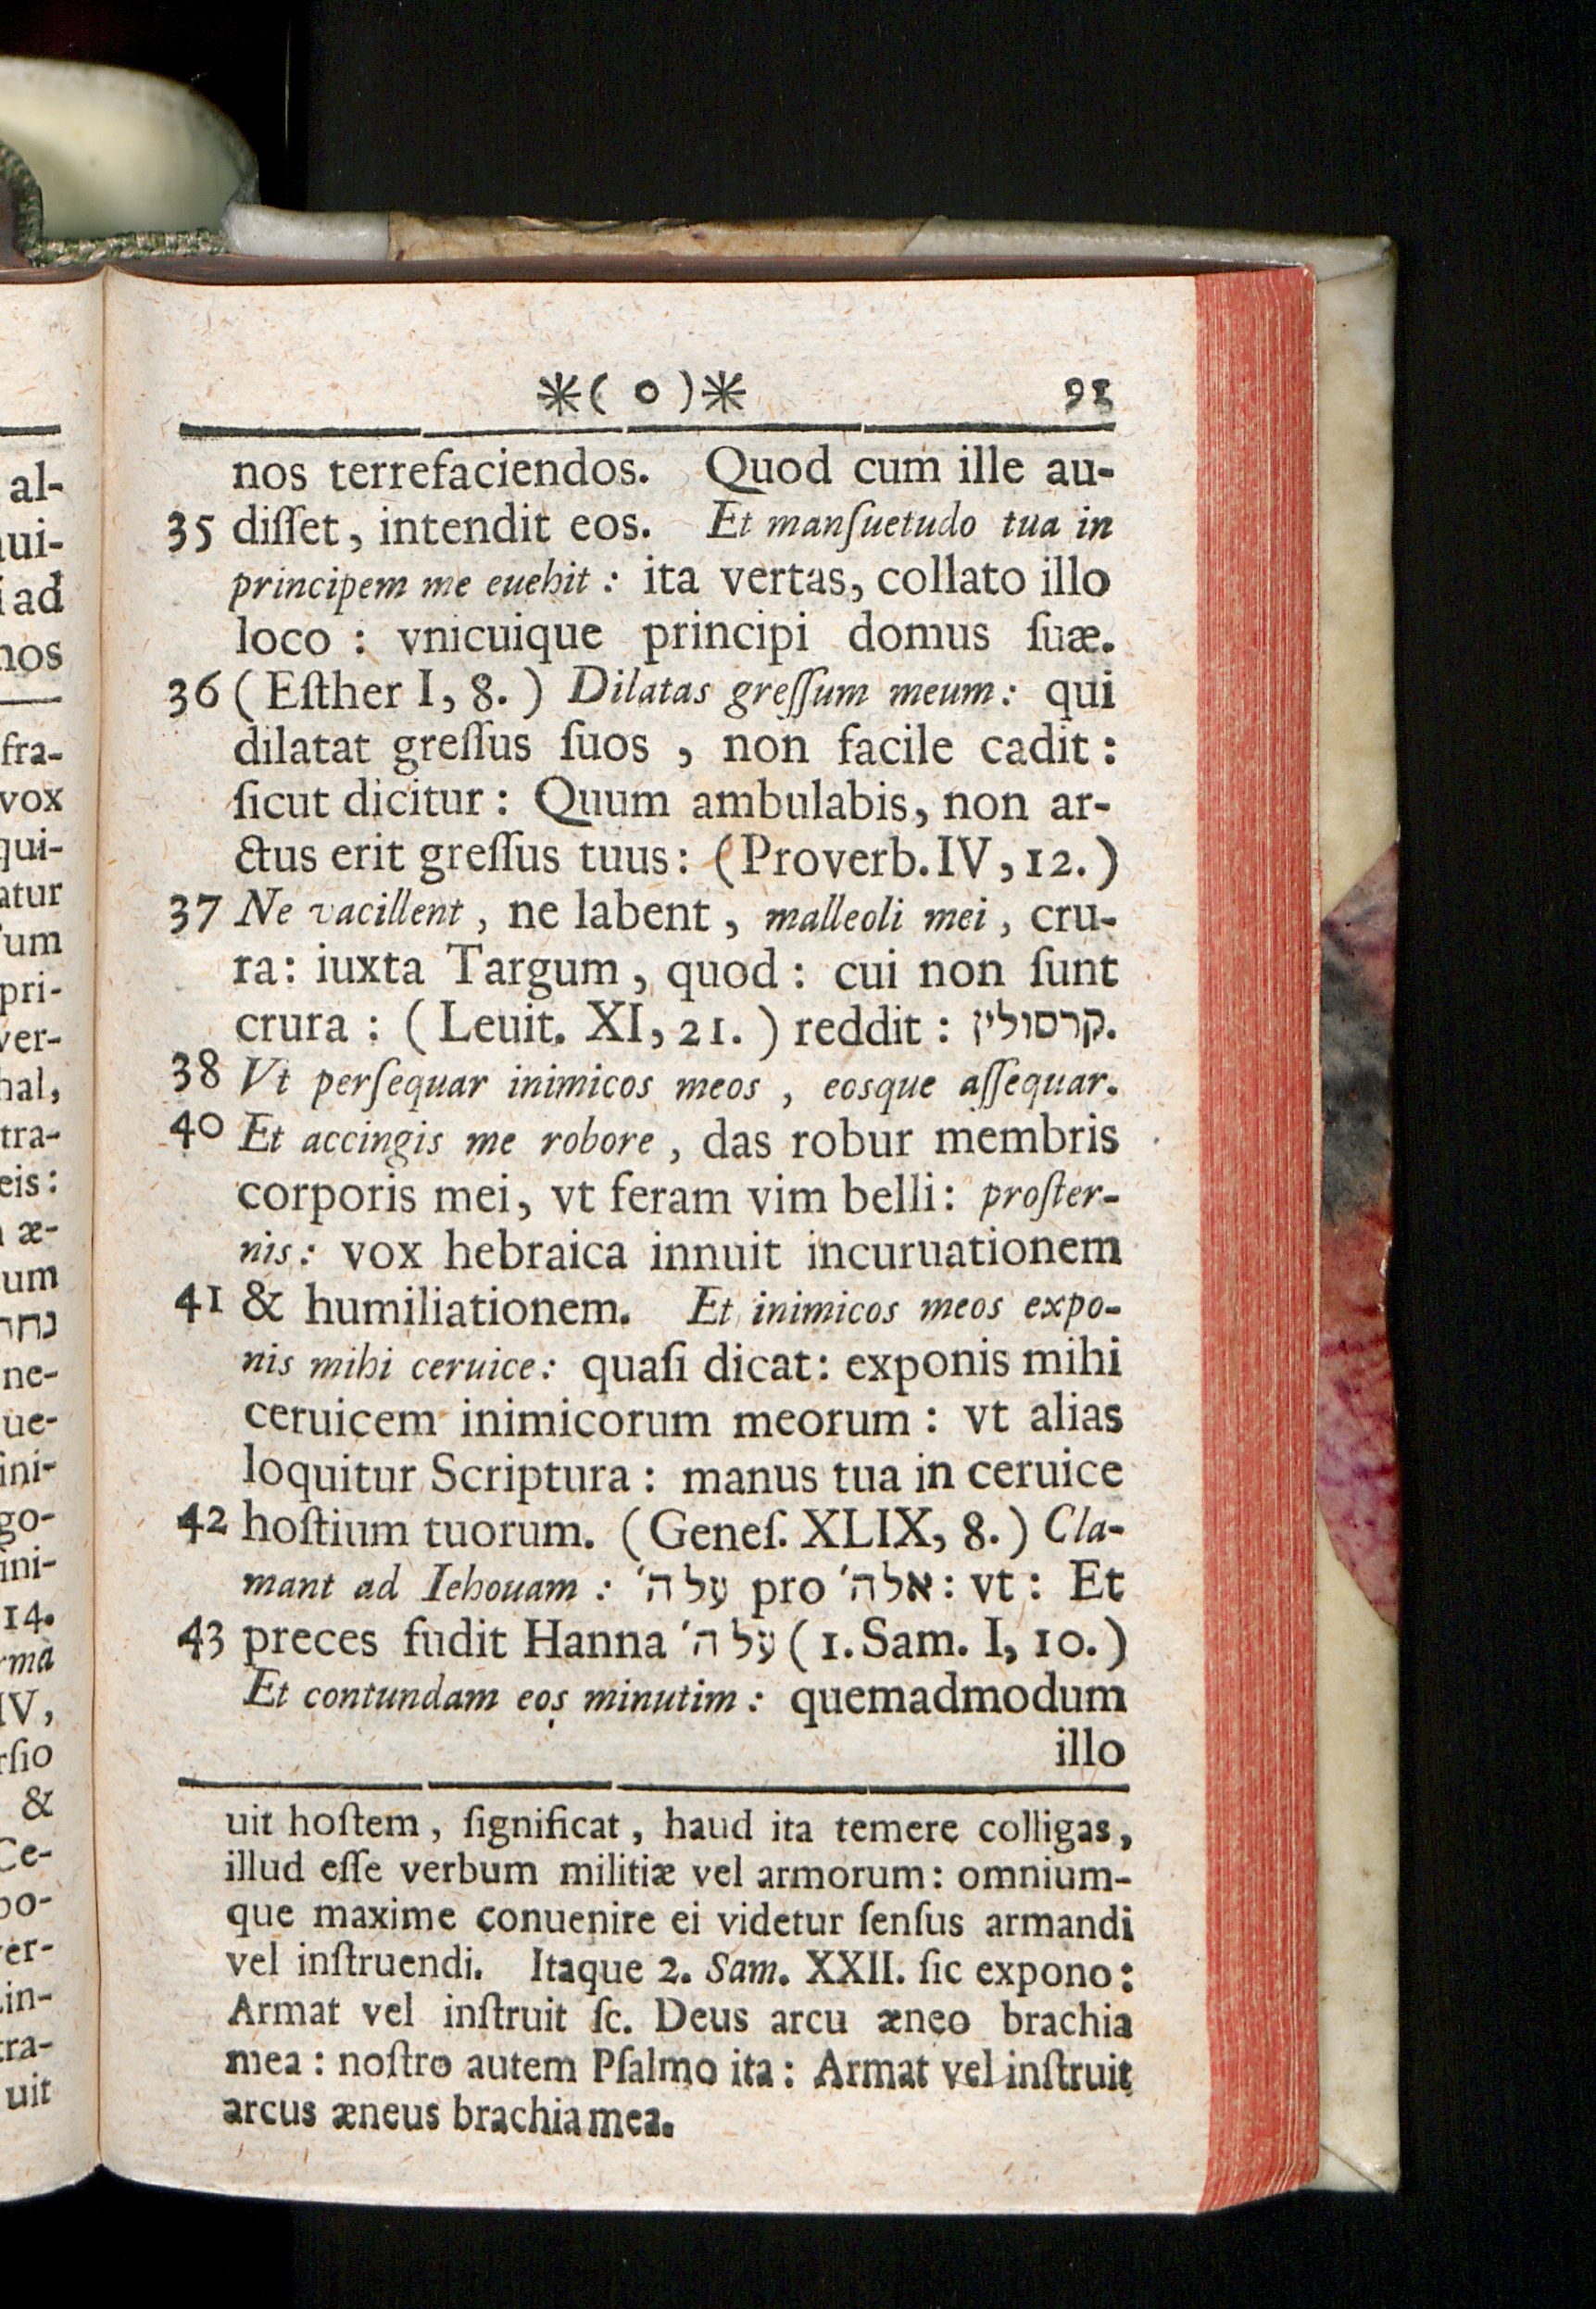 *( o )* 91
nos terrefaciendos. Quod cum ille au-
35 diſſet, intendit eos. Et manſuetudo tua in
principem me euehit : ita vertas, collato illo
loco : vnicuique principi domus ſuæ.
36 ( Eſther I, 8. ) Dilatas greſſum meum : qui
dilatat greſſus ſuos , non facile cadit :
ſicut dicitur : Quum ambulabis, non ar-
ctus erit greſſus tuus : (Proverb. IV, 12.)
37 Ne vacillent , ne labent , malleoli mei , cru-
ra: iuxta Targum, quod : cui non ſunt
crura : ( Leuit. XI, 21. ) reddit : קרסולין.
38 Vt perſequar inimicos meos , eosque aſſequar.
40 Et accingis me robore , das robur membris
corporis mei, vt feram vim belli: proſter-
nis: vox hebraica innuit incuruationem
41 & humiliationem. Et inimicos meos expo-
nis mihi ceruice: quaſi dicat: exponis mihi
ceruicem inimicorum meorum : vt alias
loquitur Scriptura : manus tua in ceruice
42 hoſtium tuorum. (Geneſ. XLIX, 8.) Cla-
mant ad Iehouam : על ה׳ pro אל ה׳ : vt : Et
43 preces fudit Hanna על ה׳ ( 1. Sam. I, 10.)
Et contundam eos minutim : quemadmodum
illo
uit hoſtem, ſignificat, haud ita temere colligas,
illud eſſe verbum militiæ vel armorum: omnium-
que maxime conuenire ei videtur ſenſus armandi
vel inſtruendi. Itaque 2. Sam. XXII. ſic expono:
Armat vel inſtruit ſc. Deus arcu æneo brachia
mea : noſtro autem Pſalmo ita : Armat vel inſtruit
arcus æneus brachia mea.